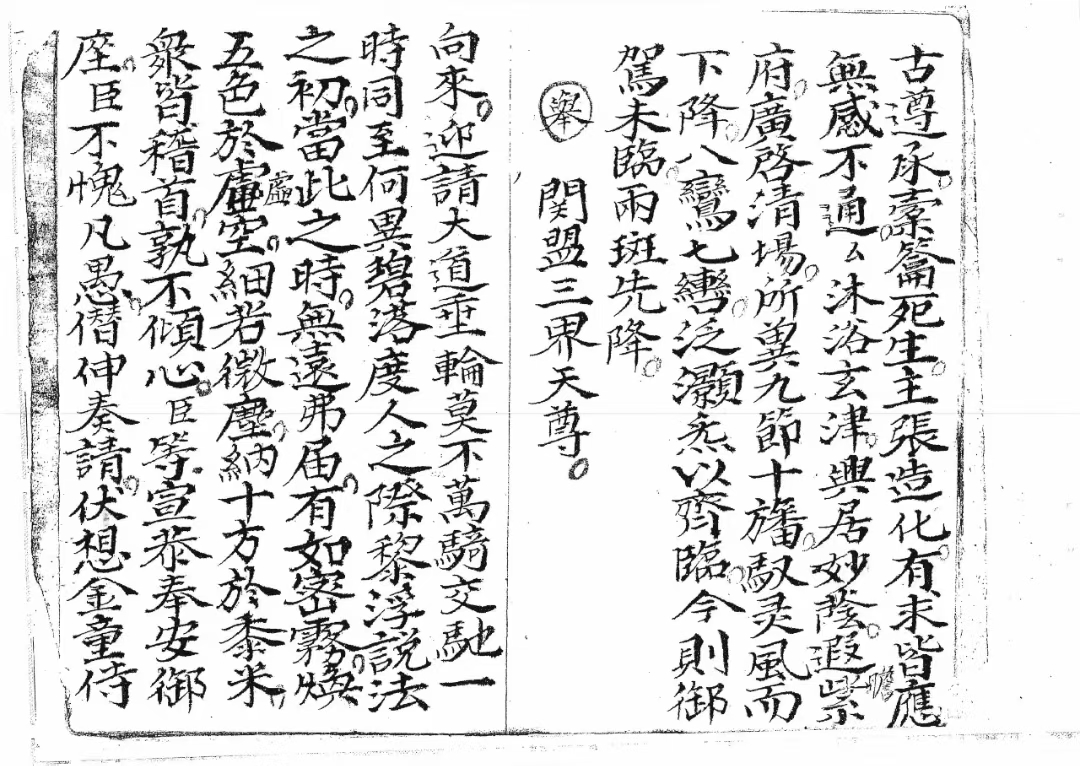 古遵承槖籥死生主張造化有求皆應
無感不通么沐浴玄津興居妙蔭遐瞻紫
府廣啓清場所兾九節十旛馭灵風而
下降八鸞七轡泛灝炁以齊臨今則御
駕未臨兩班先降
舉 関盟三界天尊
向來迎請大道垂輪莫不萬騎交馳一
時同至何異碧落度人之際黎浮説法
之初當此之時無遠弗届有如密霧煥
五色於虛空細若微塵納十方於黍米
衆皆稽首孰不傾心臣等宣恭奉安御
座臣不愧凡愚僭伸奏請伏想金童侍